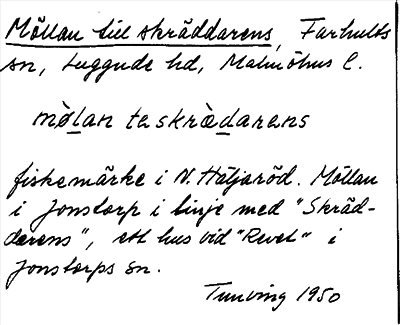 Möllan till skräddarens, Farhults
sn, Luggude hd, Malmöhus l.
mòlan te skrὲdarens
fiskemärke i N. Häljaröd. Möllan
i Jonstorp i linje med "Skräd-
darens", ett hus vid "Revet" i
Jonstorps sn.
Tunving 1950